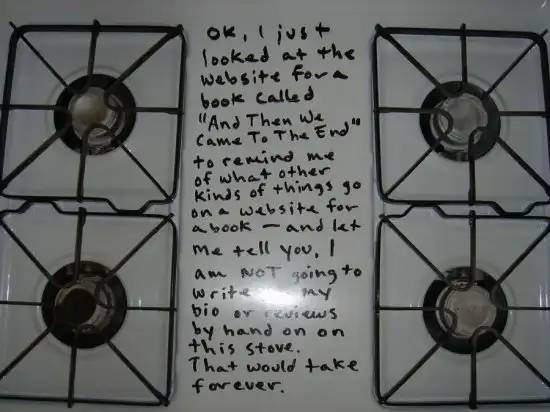 OK, I just
looked at the
website for a
book called
"And Then We
Came To The End"
to remind me
of what other
kinds of things go
on a website for
a book — and let
me tell you, I
am NOT going to
write my
bio or reviews
by hand on on
this stove.
That would take
forever.